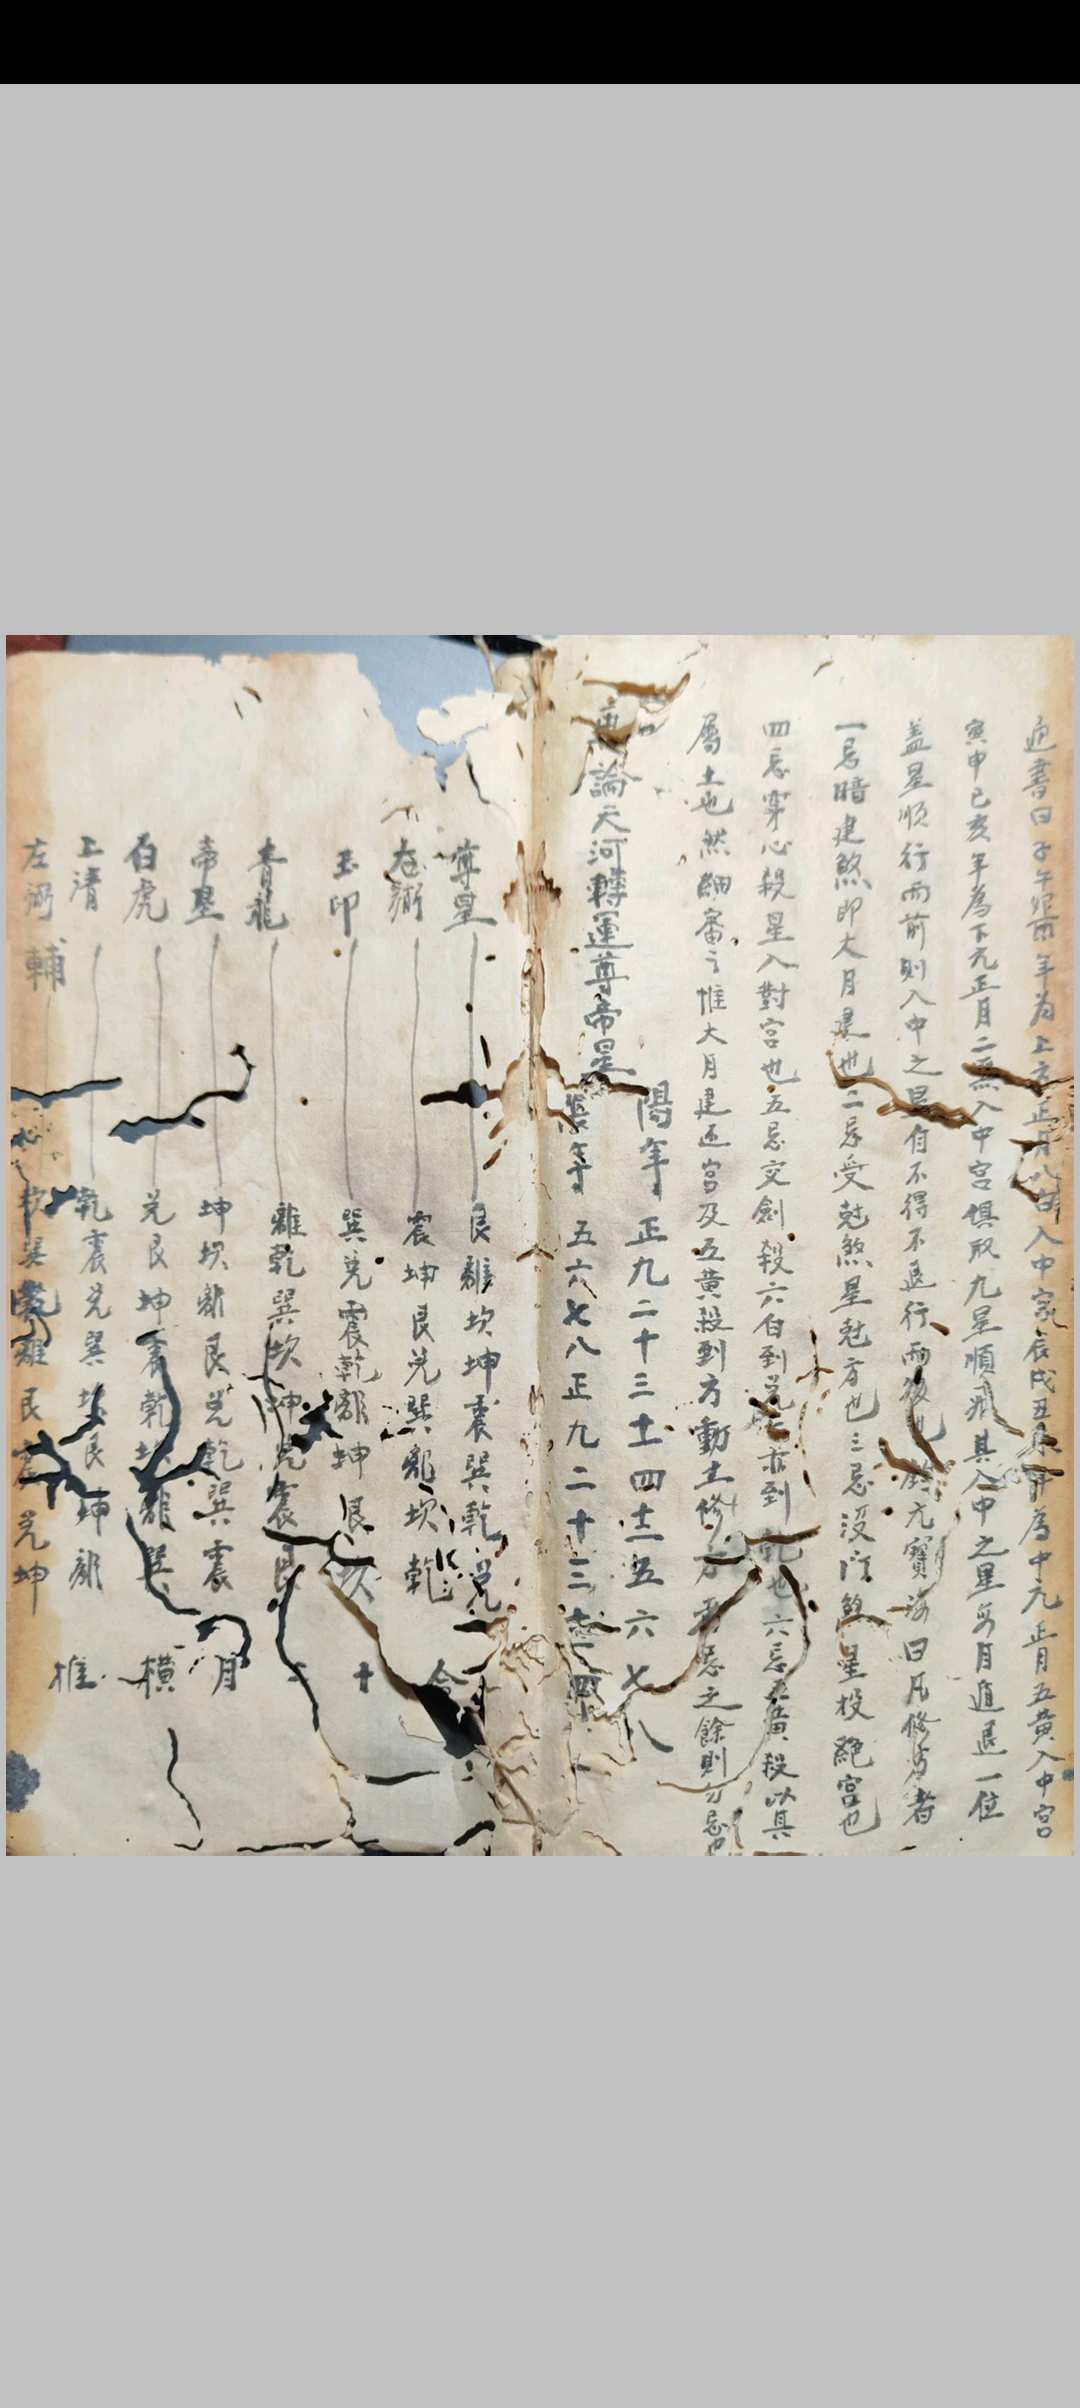 通書曰子午卯酉年为上元正月八白入中宮辰戌丑未年為中元正月五黄入中宮
寅申巳亥年為下元正月二黑入中宮俱取九星順飛其入中之星每月逆退一位
盖星順行而前則入中之星自不得不退行而後也 元寶海曰凡修方者
一忌暗建煞即大月建也二忌受尅煞星尅方也三忌没門煞星投絶宮也
四忌穿心殺星入對宮也五忌交劍殺六白到兌七赤到乾也六忌五黄殺以其
屬土也然細審之惟大月建还宮及五黄殺到方動土修方 忌之餘則勿忌也
論天河轉運尊帝星
陽年 正九 二十 三十一 四十二 五 六 七 八
陰年 五 六 七 八 正九 二十 三十一 四
尊皇 艮離坎坤震巽乾兌
震坤艮兌巽離坎乾
玉印 巽兌震乾離坤艮坎
青龍 離乾巽坎坤兌震艮
帝星 坤坎離艮兌乾巽震
白虎 兌艮坤震乾坎離巽
上清 乾震兌巽坎艮坤離
左弼輔 坎巽乾離艮震兌坤
十二月橫推